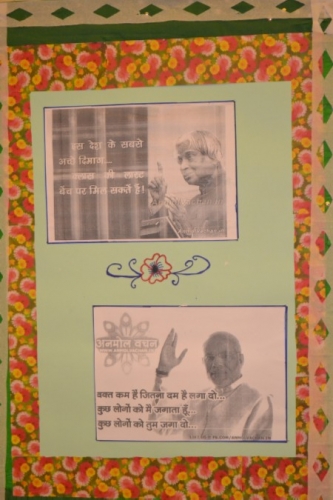 इस देश के सबसे
अच्छे दिमाग...
क्लास की लास्ट
बेंच पर मिल सकते हैं!
अनमोल वचन
वक्त कम हैं जितना दम हैं लगा दो...
कुछ लोगों को मैं जगाता हूँ,
कुछ लोगों को तुम जगा दो...